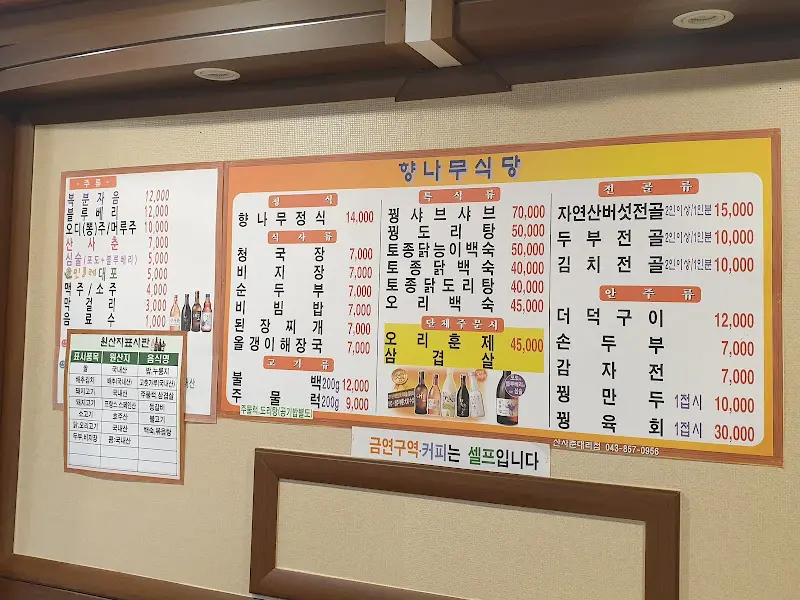 - 주류 -
복분자음 12,000
블루베리 12,000
오디(뽕)주/머루주 10,000
산사춘 7,000
심술(포도+블루베리) 5,000
대포 5,000
맥주/소주 4,000
막걸리 3,000
음료수 1,000
원산지표시판
표시품목 원산지 음식명
쌀 국내산 밥,누룽지
배추김치 배추(국내산) 고춧가루(국내산)
돼지고기 국내산 주물럭,삼겹살
돼지고기 등갈비
소고기 호주산 불고기
닭,오리고기 국내산 백숙,볶음탕
두부,비지장 콩:국내산
향나무식당
정식
향나무정식 14,000
식사류
청국장 7,000
비지장 7,000
순두부 7,000
비빔밥 7,000
된장찌개 7,000
올갱이해장국 7,000
고기류
불백 200g 12,000
주물럭 200g 9,000
주물럭,도리탕(공기밥별도)
특식류
꿩샤브샤브 70,000
꿩도리탕 50,000
토종닭능이백숙 50,000
토종닭백숙 40,000
토종닭도리탕 40,000
오리백숙 45,000
단체주문시
오리훈제 45,000
삼겹살
전골류
자연산버섯전골 2인이상/1인분 15,000
두부전골 2인이상/1인분 10,000
김치전골 2인이상/1인분 10,000
안주류
더덕구이 12,000
손두부 7,000
감자전 7,000
꿩만두 1접시 10,000
꿩육회 1접시 30,000
산사춘대리점 043-857-0956
금연구역·커피는 셀프입니다